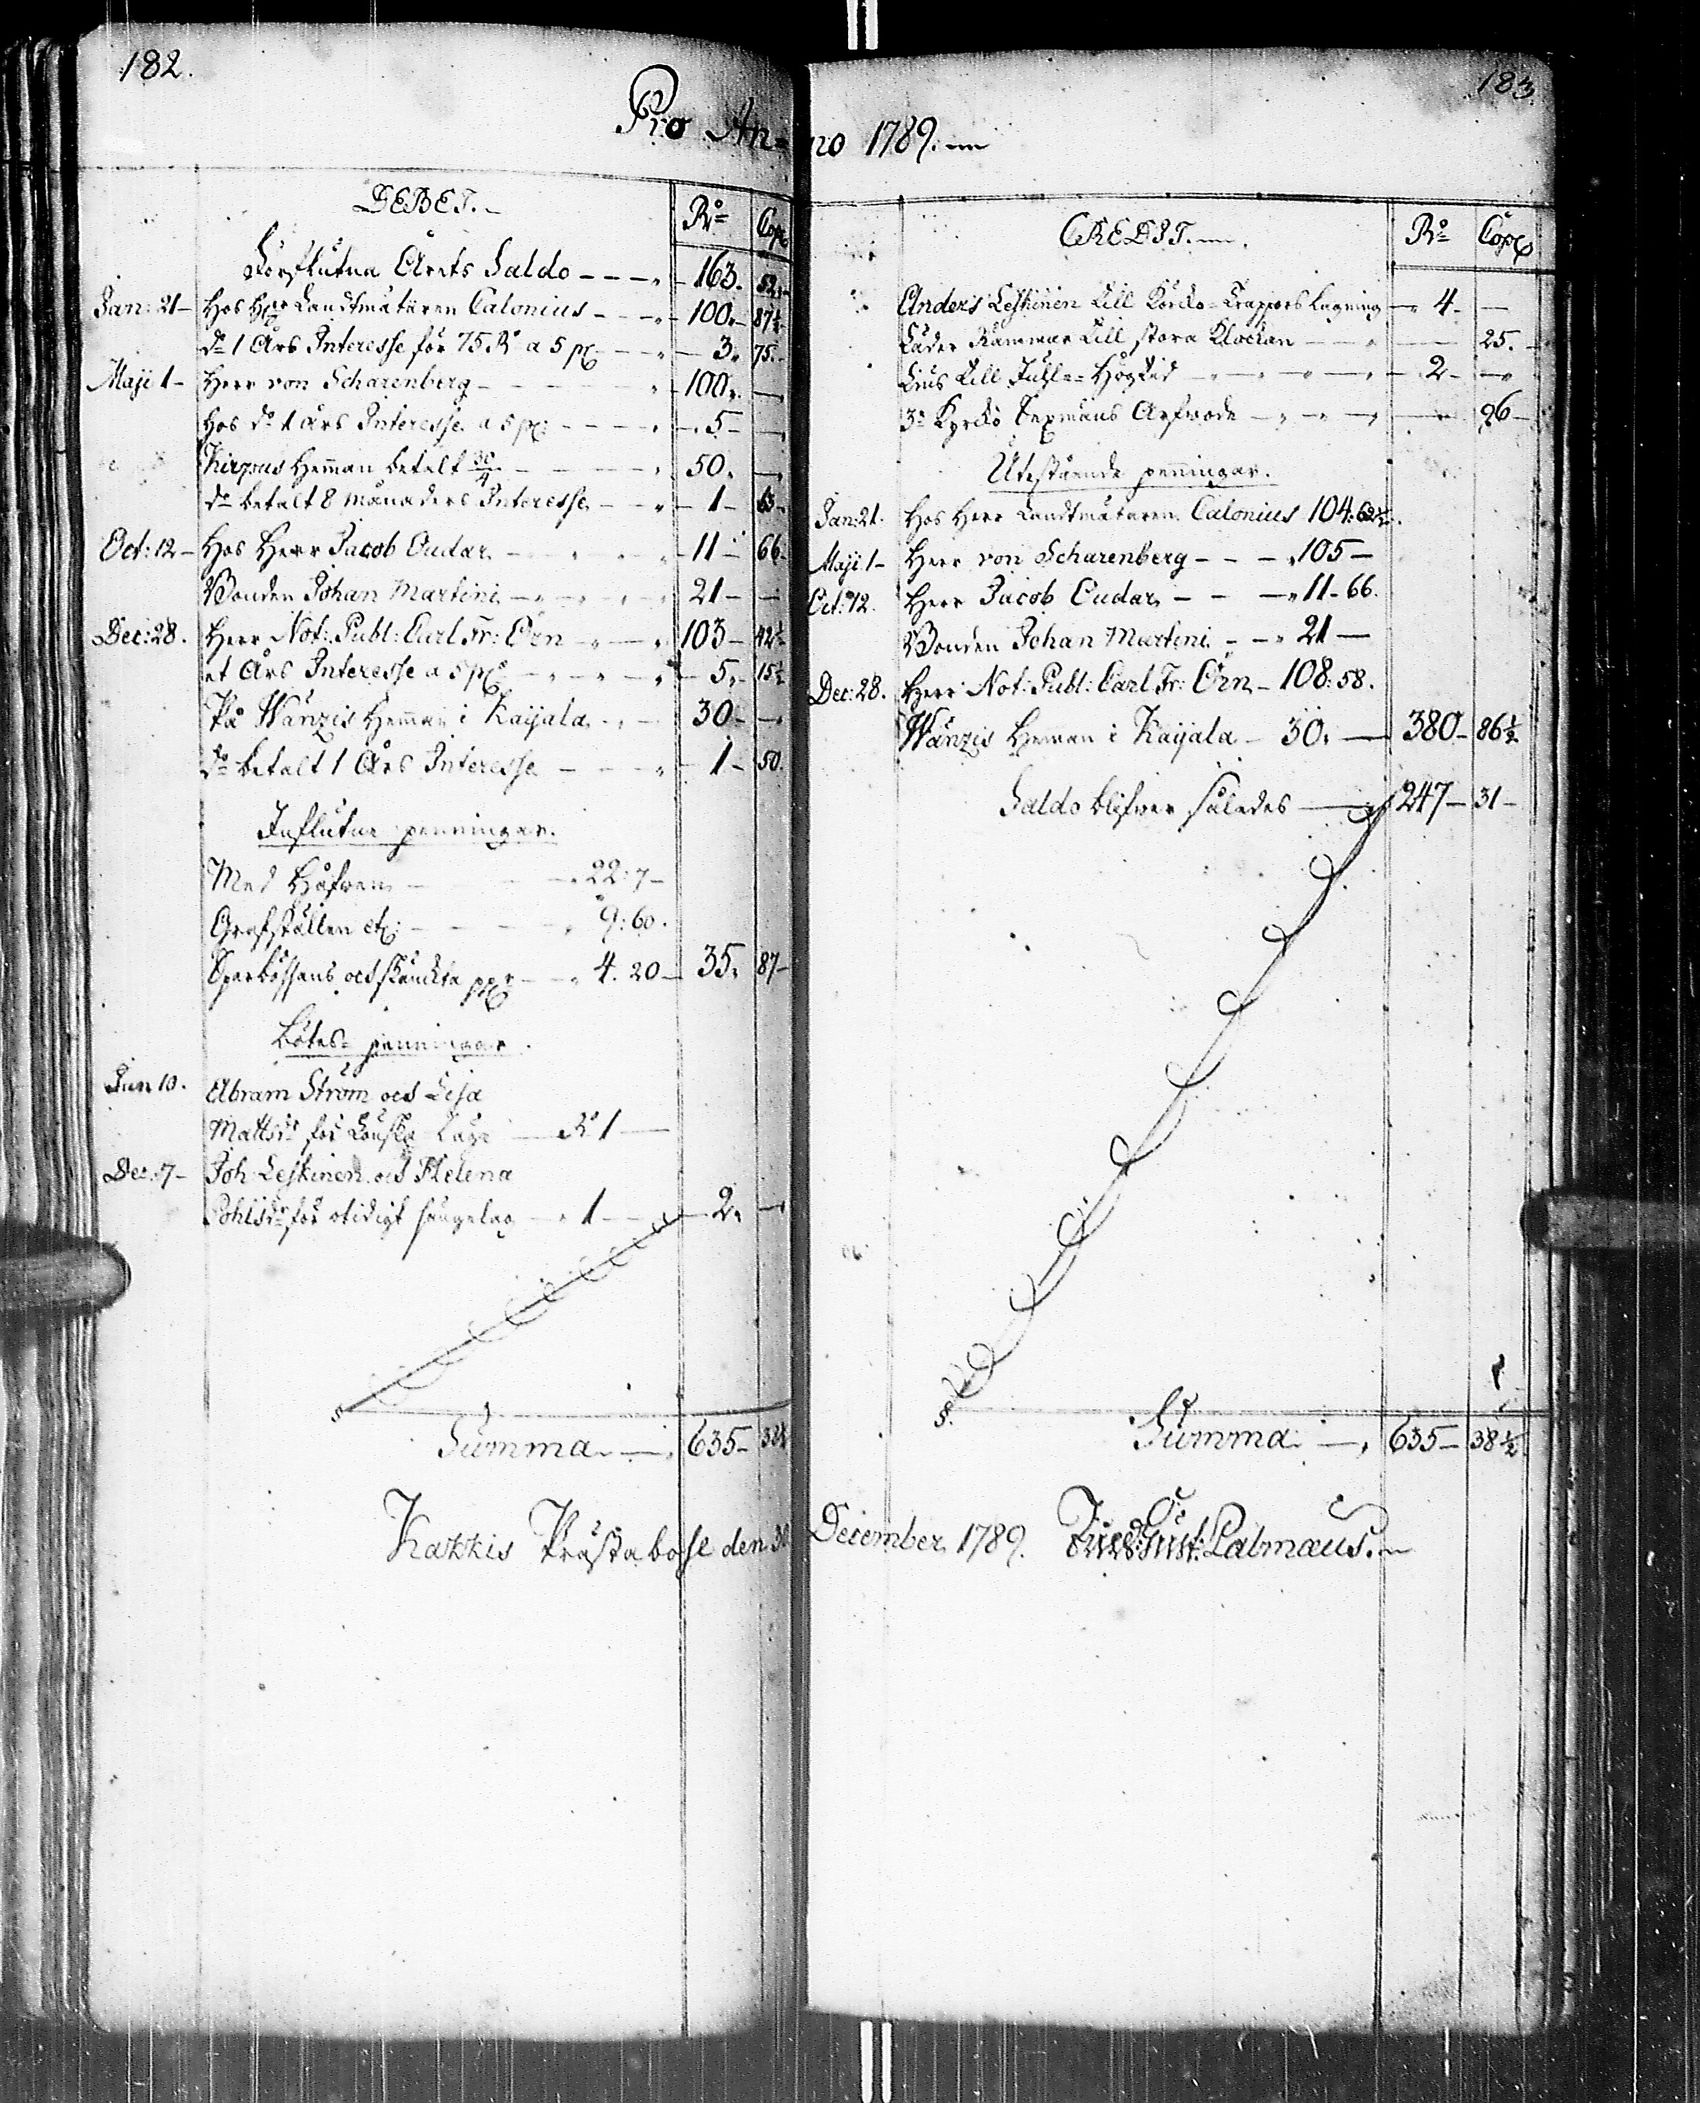 182.
Pro An=
DEBET.
Ro Cop
Förflutna Årets Saldo 163. 52
Jan: 21 Hos Herr Landtmätaren Calonius 100. 87½
do 1 Års Interesse för 75 Ro a 5 pC 3. 75.
Maji 1 Herr von Scharenberg 100.
Hos do 1 års Interesse a 5 pC 5
Kirppus Hemman betalt 30/4 50.
do betalt 8 månaders Interesse 1 63
Oct: 12 Hos Herr Jacob Oudar 11 66
Bonden Johan Martini 21
Dec: 28. Herr Not: Publ: Carl Fr: Örn 103 42½
et Års Interesse a 5 pC 5. 15½
På Wänzis Hemman i Kayala 30
do betalt 1 Års Interesse 1 50.
Influtne penningar.
Med Håfven 22:7
Grafställen etc: 9:60.
Sparbössans och skänkta 4. 20 35. 87
Bötes= penningar.
Jun 10. Abram Ström och Lisa
Mattsdr för Ro 1
Dec: 7 Joh: Leskinen och Helena
Pohlsdr för otidigt sängelag 1 2.
Summa 635 38½
Kakkis Prästabohl den 30
183.
no 1789.
CREDIT.
Ro Cop
Anders Leskinen till Kyrko=Trappors lagning 4.
Läder Rämmar till stora Klockan 25.
Lius till Juhle=Högtid 2
3ne Kyrko Sexmäns Arfwode 96
Utestående penningar.
Jan: 21. Hos Herr Landtmätaren Calonius 104:62½.
Maji 1 Herr von Scharenberg 105
Oct: 12. Herr Jacob Oudar 11 66.
Bonden Johan Martini 21
Dec: 28. Herr Not: Publ: Carl Fr: Örn 108:58.
Wänzis Hemman i Kayala 30. 380 86½
Saldo blifver således 247 31
Summa 635 38½
December 1789. Gust: Palmæus.